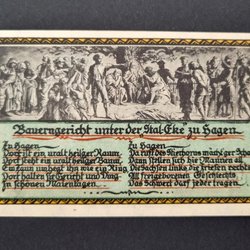 "Bauerngericht unter der Stal-Eke" zu Hagen.
Zu Hagen
Dort ist ein uralt heilger Raum,
Dort steht ein uralt heiliger Baum,
Ein Zaun umhegt ihn wie ein Ring
Dort halten sie Gericht und Ding
In schönen Maientagen.
Zu Hagen
Da ruft des Methorns mächtger Scha
Dann stellen sich die Mannen all
Die Sachsen links die Friesen rechts
All freigeborenen Geschlechts
Das Schwert darf jeder tragen.